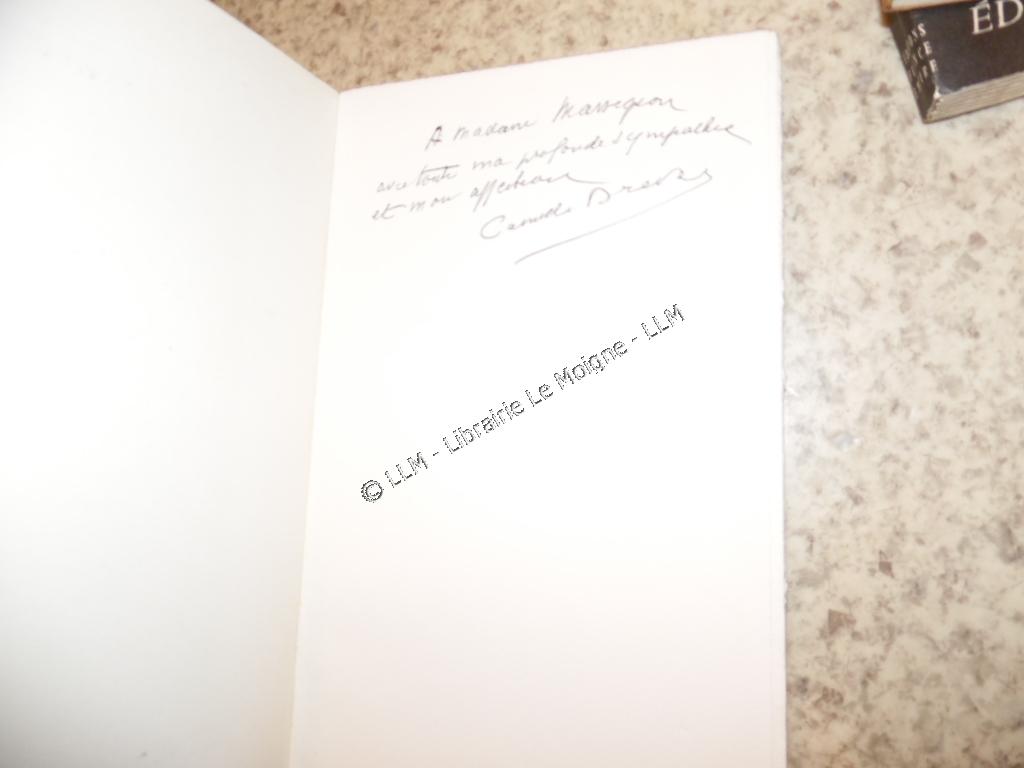 A Madame Massignon
avec toute ma profonde sympathie
et mon affection
Camille Drevet
© LLM - Librairie Le Moigne - LLM
ÉD